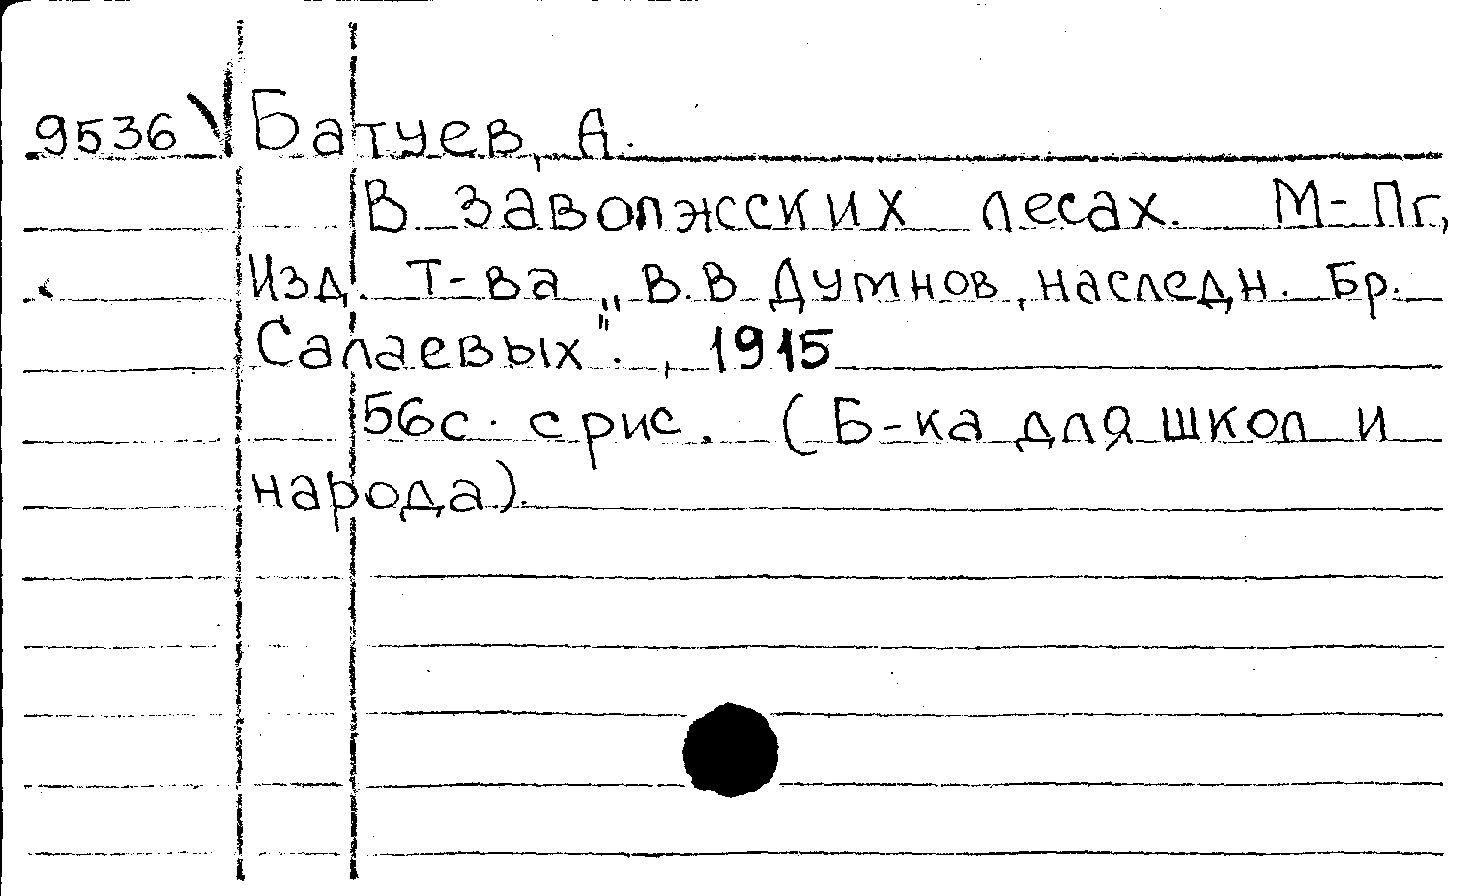 9536 Батуев, А.
В заволжских лесах. М-Пг,
Изд. Т-ва „В.В Думнов, наследн. Бр.
Салаевых"., 1915
56с. с рис. (Б-ка для школ и
народа).